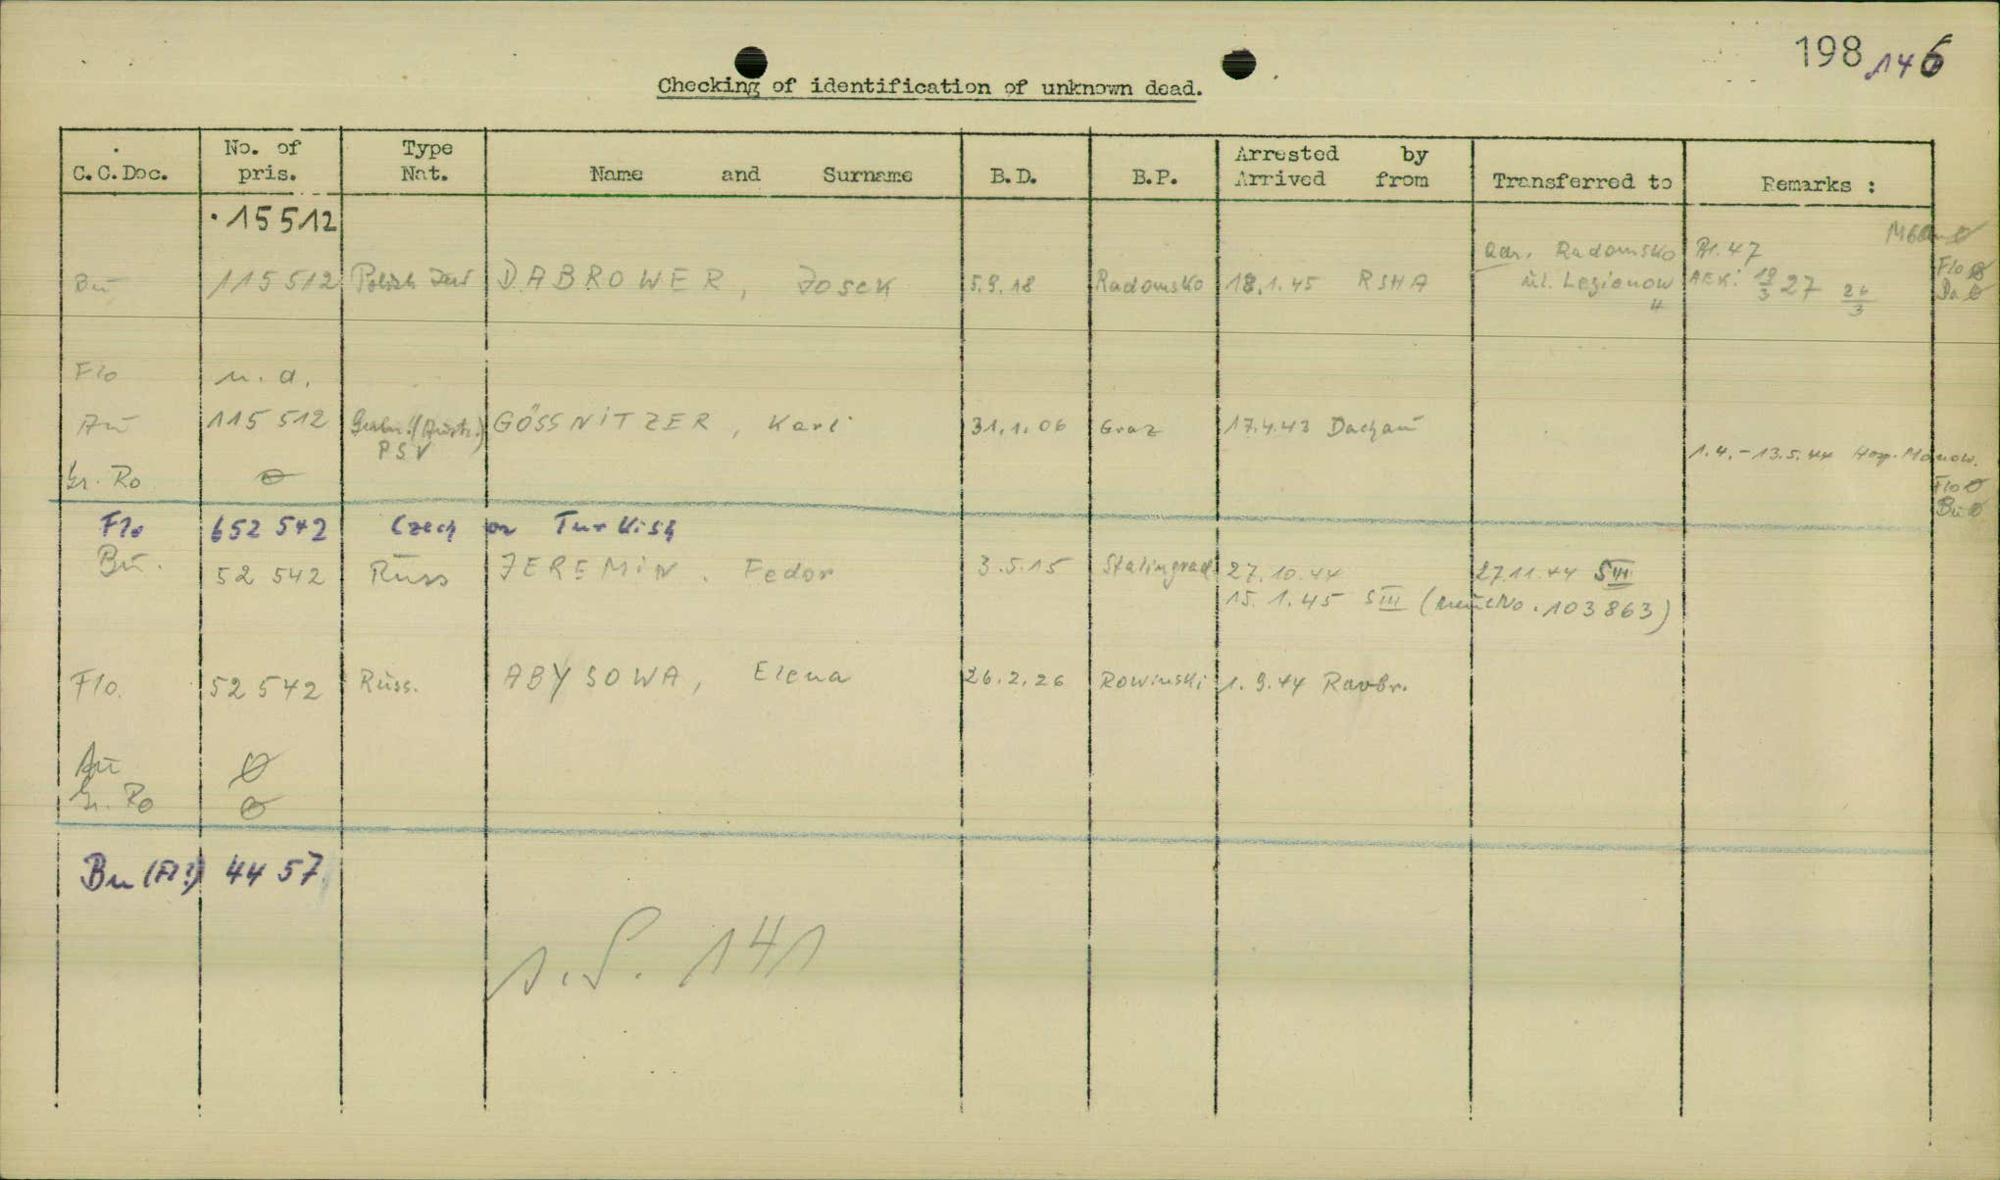 198 146
Checking of identification of unknown dead.
C.C.Doc. No. of pris. Type Nat. Name and Surname B.D. B.P. Arrested by Arrived from Transferred to Remarks :
·15512
Adr. Radomsko Pr. 47
Bu 115512 Polish Jew DABROWER, Josek 5.9.18 Radomsko 18.1.45 RSHA ul. Legionow 4 AEK: 19/3 27 26/3 Flo ø Da ø
Flo n. a.
Au 115 512 (Austr.) PSV GÖSSNITZER, Karl 31.1.06 Graz 17.4.43 Dachau
1.4.-13.5.44 Hosp. Monow.
Gr. Ro ø Flo ø
Bu ø
Flo 652 542 Czech or Turkish
Bu. 52 542 Russ JEREMIN, Fedor 3.5.15 Stalingrad 27.10.44 27.11.44 SIII
15.1.45 SIII (neue No. 103863)
Flo. 52 542 Russ. ABYSOWA, Elena 26.2.26 Rowinski 1.9.44 Ravbr.
Au ø
Gr. Ro ø
Bu (Fl?) 44 57
s. S. 141